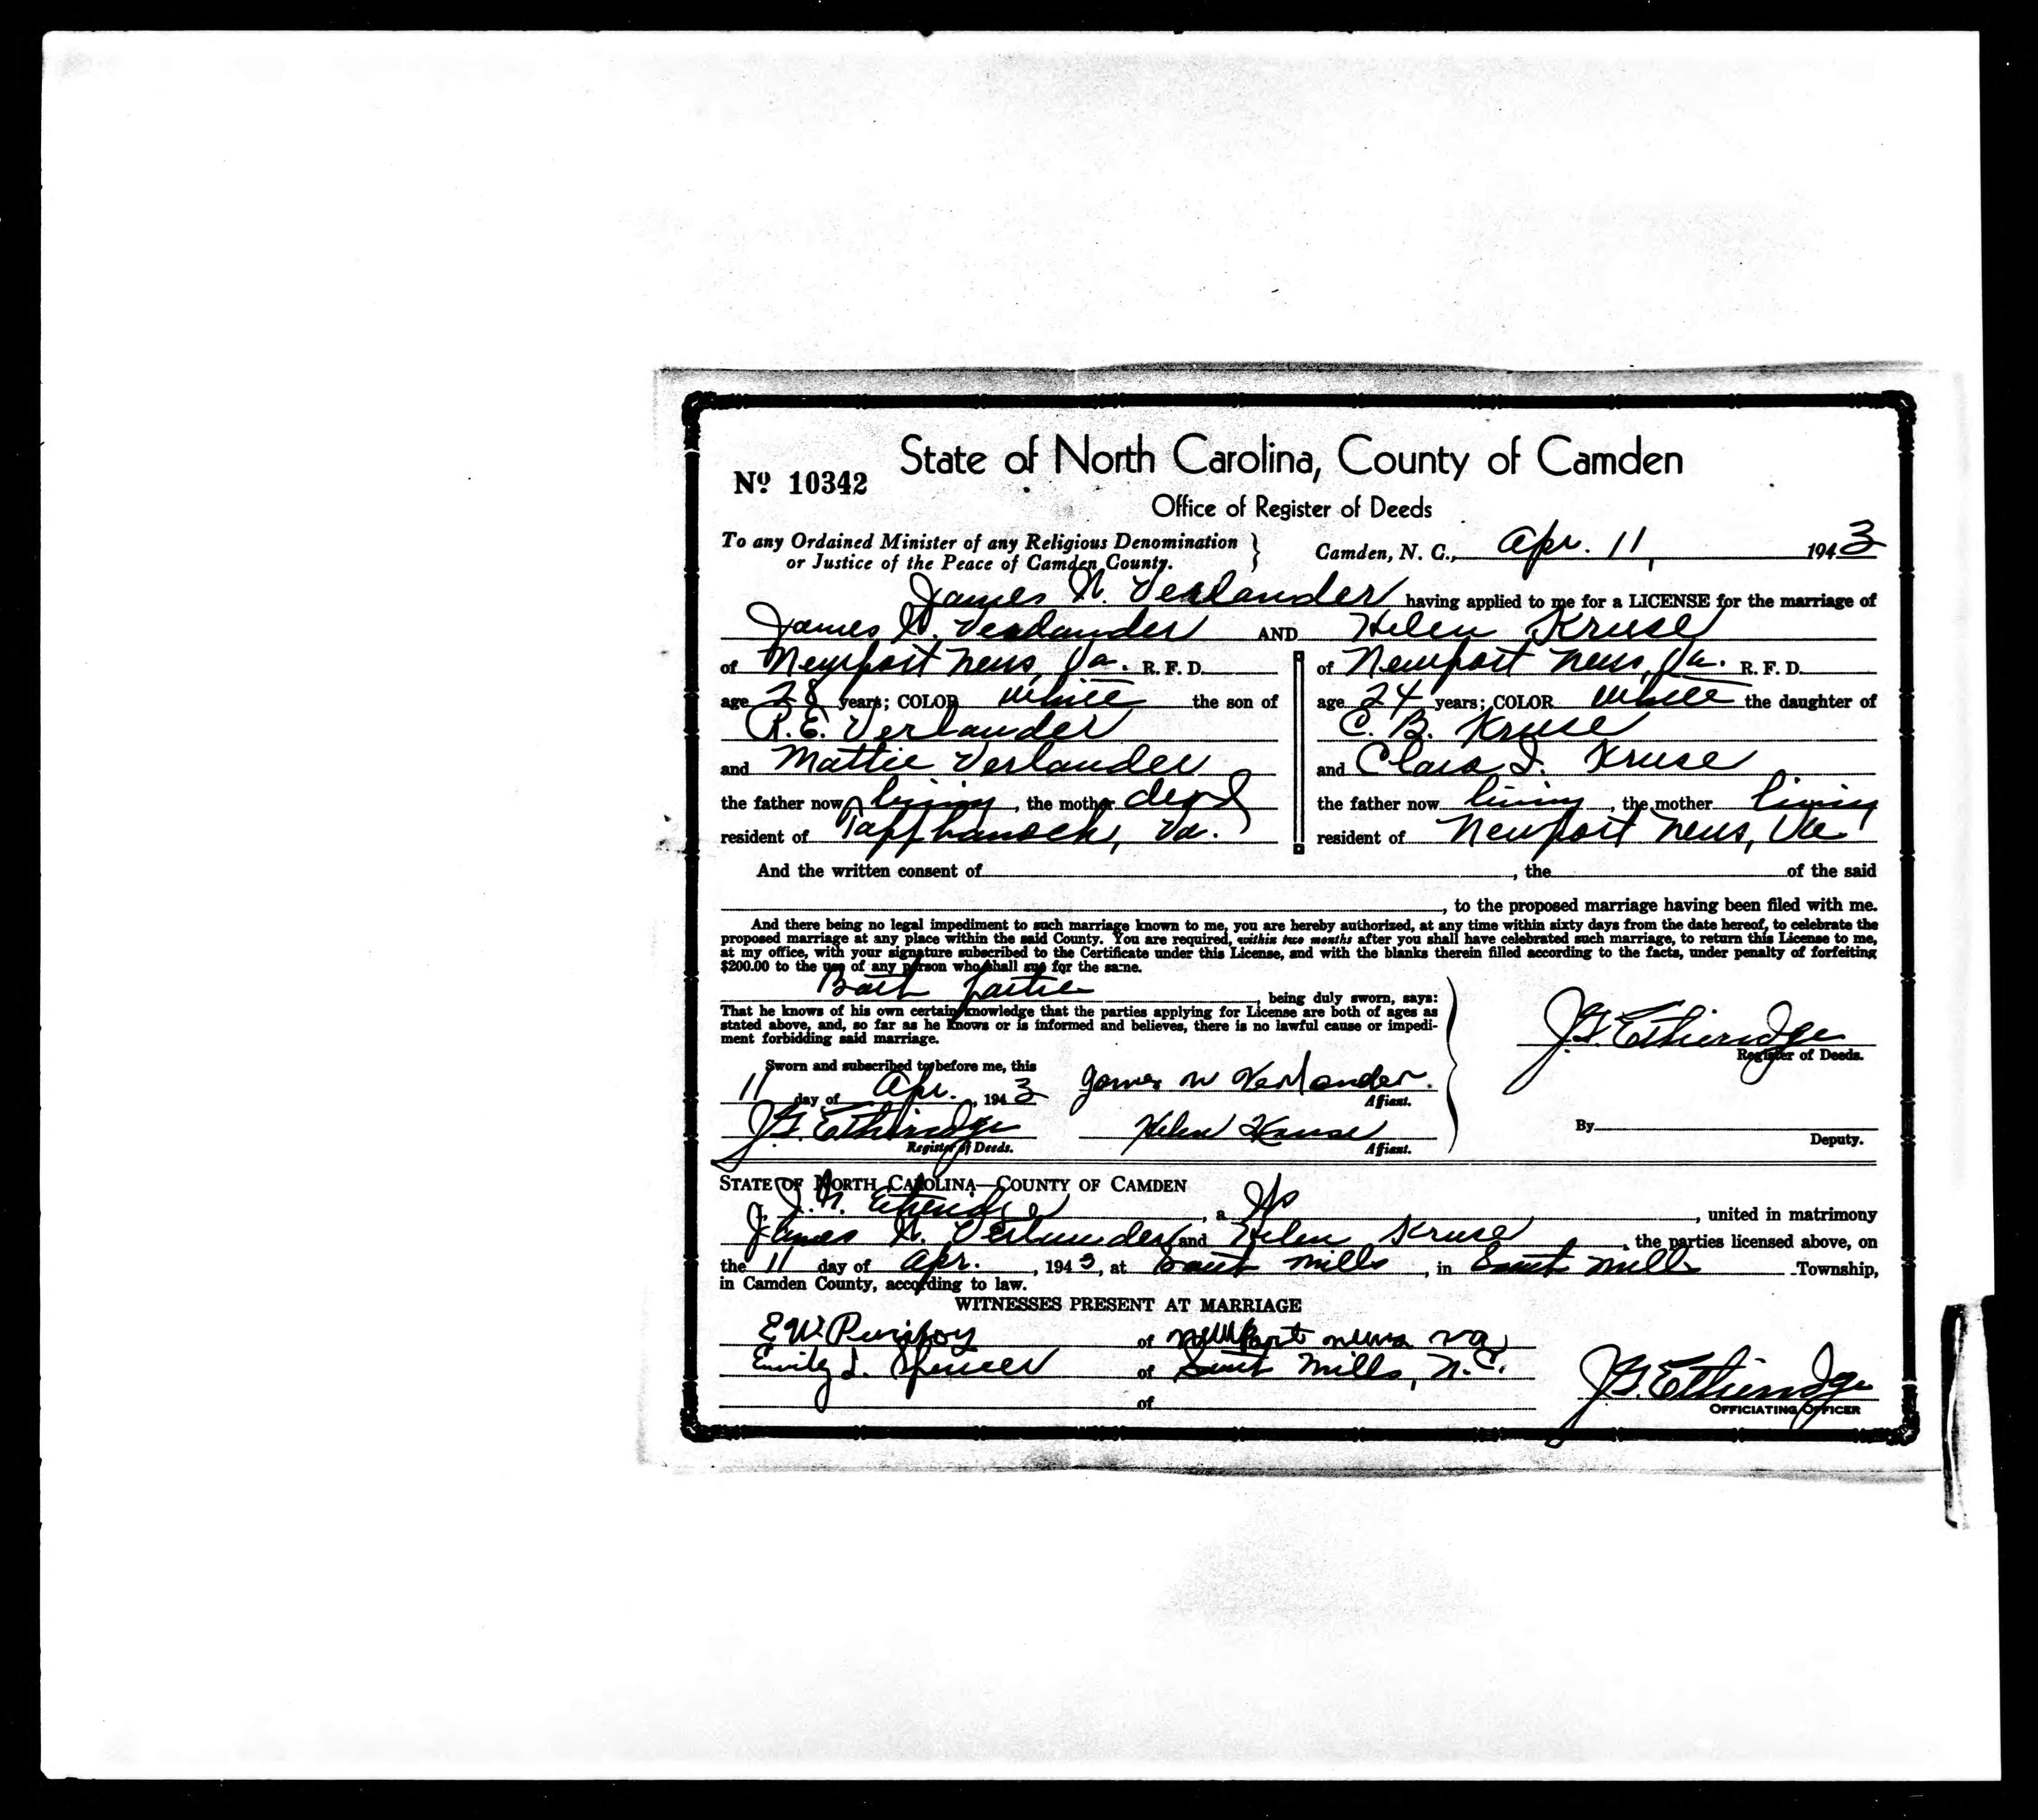 State of North Carolina, County of Camden
No 10342
Office of Register of Deeds
To any Ordained Minister of any Religious Denomination
or Justice of the Peace of Camden County.
Camden, N. C., Apr. 11, 1943
James W. Verlander having applied to me for a LICENSE for the marriage of
James W. Verlander AND Helen Kruse
of Newport News, Va. R. F. D. of Newport News, Va. R. F. D.
age 28 years; COLOR White the son of age 24 years; COLOR White the daughter of
R. E. Verlander C. B. Kruse
and Mattie Verlander and Clara I. Kruse
the father now living, the mother dead the father now living, the mother living
resident of Tapphanock, Va. resident of Newport News, Va
And the written consent of , the of the said
, to the proposed marriage having been filed with me.
And there being no legal impediment to such marriage known to me, you are hereby authorized, at any time within sixty days from the date hereof, to celebrate the
proposed marriage at any place within the said County. You are required, within two months after you shall have celebrated such marriage, to return this License to me,
at my office, with your signature subscribed to the Certificate under this License, and with the blanks therein filled according to the facts, under penalty of forfeiting
$200.00 to the use of any person who shall sue for the same.
Both parties, being duly sworn, says:
That he knows of his own certain knowledge that the parties applying for License are both of ages as
stated above, and, so far as he knows or is informed and believes, there is no lawful cause or impedi-
ment forbidding said marriage.
J.G. Etheridge
Register of Deeds.
Sworn and subscribed to before me, this
11 day of Apr., 1943 James W Verlander.
Affiant.
J.G. Etheridge Helen Kruse
Register of Deeds. Affiant.
By Deputy.
STATE OF NORTH CAROLINA—COUNTY OF CAMDEN
I, J. G. Etheridge, a JP, united in matrimony
James W. Verlander and Helen Kruse, the parties licensed above, on
the 11 day of Apr., 1943, at South Mills, in South Mills Township,
in Camden County, according to law.
WITNESSES PRESENT AT MARRIAGE
E W. Purifoy of Newport News Va
Emily I. Spencer of South Mills, N.C.
of
J.G. Etheridge
OFFICIATING OFFICER